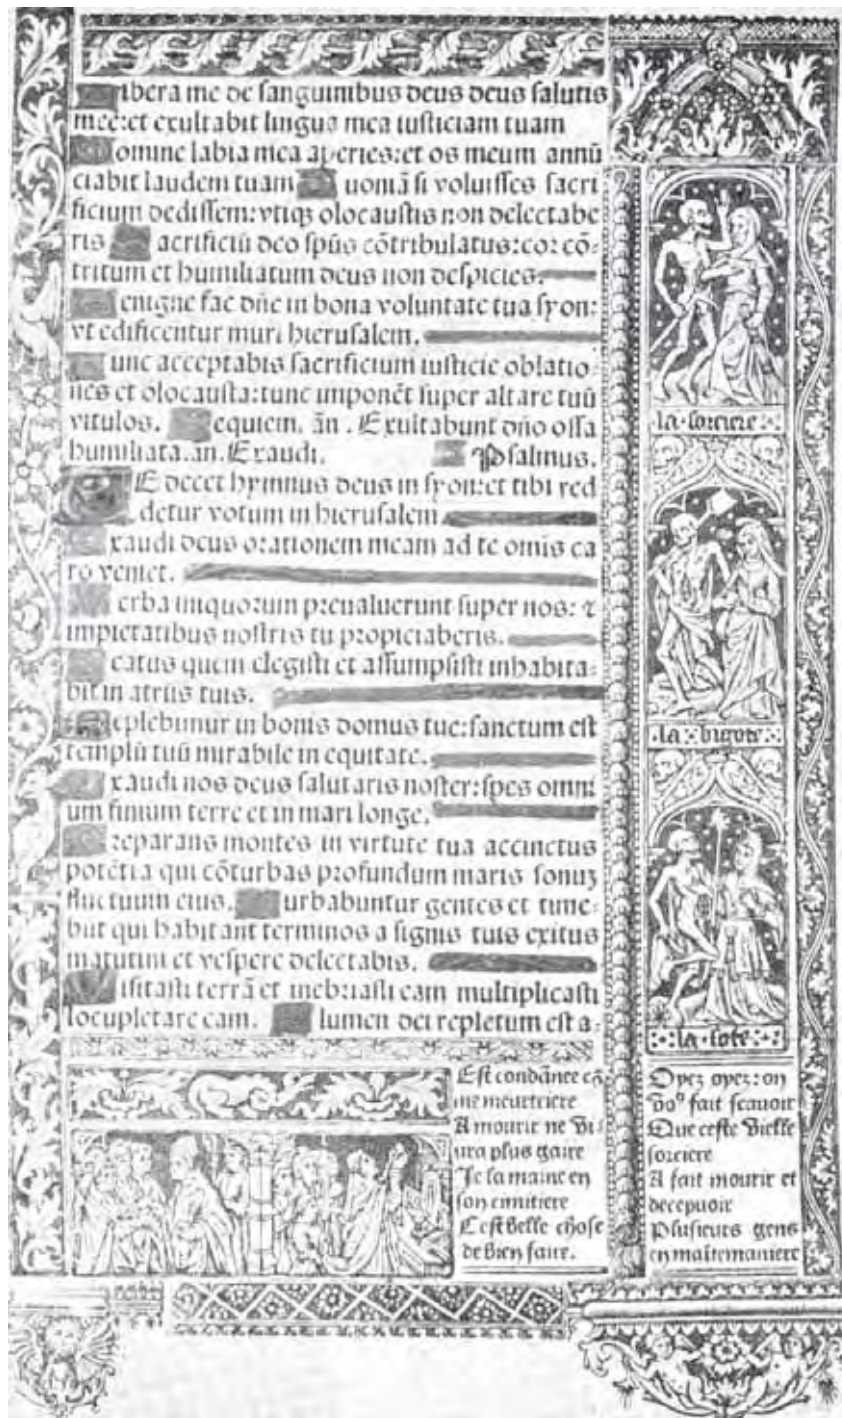 ibera me de sanguinibus deus deus salutis
mee:et exultabit lingua mea iusticiam tuam
omine labia mea aperies:et os meum annū
ciabit laudem tuam uoniā si voluisses sacri
ficium dedissem:vtiqꝫ olocaustis non delectabe
ris acrificiū deo spūs cōtribulatus:cor cō-
tritum et humiliatum deus non despicies.
enigne fac dn̄e in bona voluntate tua syon:
vt edificentur muri hierusalem.
unc acceptabis sacrificium iusticie oblatio-
nes et olocausta:tunc imponēt super altare tuū
vitulos. equiem. an̄. Exultabunt dn̄o ossa
humiliata.an. Exaudi. Psalmus.
E decet hymnus deus in syon:et tibi red
detur votum in hierusalem
xaudi deus orationem meam ad te omis ca
ro veniet.
erba iniquorum preualuerunt super nos: ⁊
impietatibus nostris tu propiciaberis.
eatus quem elegisti et assumpsisti inhabita-
bit in atriis tuis.
eplebimur in bonis domus tue:sanctum est
templū tuū mirabile in equitate.
xaudi nos deus salutaris noster:spes omni
um finium terre et in mari longe.
reparans montes in virtute tua accinctus
potētia qui cōturbas profundum maris sonuꝫ
fluctuum eius. urbabuntur gentes et time-
būt qui habitant terminos a signis tuis exitus
matutini et vespere delectabis.
isitasti terrā et inebriasti eam multiplicasti
locupletare eam. lumen dei repletum est a-
la sorciere
la bigote
la sote
Est condānee cō-
me meurtriere
A mourir ne vi-
ura plus gaire
Je la maine en
son cimitiere
Cest belle chose
de bien faire.
Oyez oyez:on
voꝰ fait scauoir
Que ceste vielle
sorciere
A fait mourir et
decepuoir
Plusieurs gens
en maītemaniere